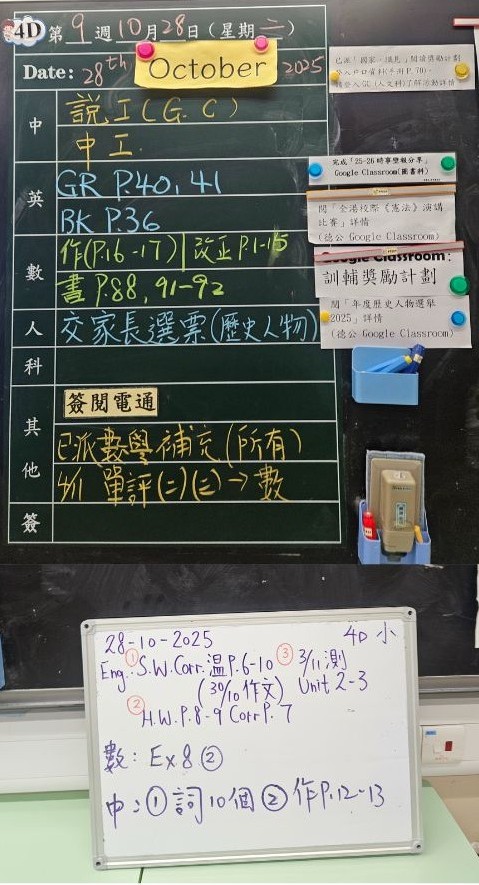 4D 第9週10月28日(星期二)
Date: 28th October 2025
中
說工(G.C)
中工.
英
GR P.40, 41
BK P.36
數
作(P.16-17) 改正P.1-15
書 P.88, 91-92
人
交家長選票(歷史人物)
科
其他
簽閱電通
已派數學補充(所有)
4/11 單評(二)(三)→數
簽
已派「國家·識見」閱讀獎勵計劃
完成「25-26時事壁報分享」
Google Classroom(圖書科)
閱「全港校際《憲法》演講
比賽」詳情
(德公 Google Classroom)
Google Classroom:
訓輔獎勵計劃
閱「年度歷史人物選舉
2025」詳情
(德公 Google Classroom)
28-10-2025 4D 小
Eng: ① S.W. Corr. 溫P.6-10 ③ 3/11 測
(30/10 作文) Unit 2-3
② H.W. P.8-9 Corr P.7
數: Ex 8 ②
中: ① 詞10個 ② 作P.12-13